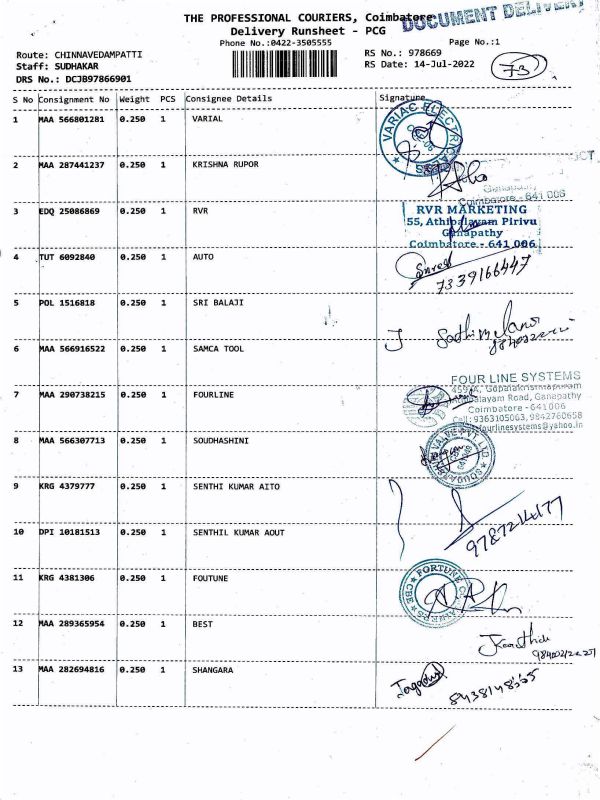 THE PROFESSIONAL COURIERS, Coimbatore
DOCUMENT DELIVERY
Delivery Runsheet - PCG
Phone No.:0422-3505555
Page No.:1
Route: CHINNAVEDAMPATTI
RS No.: 978669
Staff: SUDHAKAR
RS Date: 14-Jul-2022
73
DRS No.: DCJB97866901
S No Consignment No Weight PCS Consignee Details Signature
1 MAA 566801281 0.250 1 VARIAL
VARIAC ELECTRICALS
2 MAA 287441237 0.250 1 KRISHNA RUPOR
Ganapathy
Coimbatore - 641 006
3 EDQ 25086869 0.250 1 RVR
RVR MARKETING
55, Athipalayam Pirivu
Ganapathy
Coimbatore - 641 006
4 TUT 6092840 0.250 1 AUTO
7339166447
5 POL 1516818 0.250 1 SRI BALAJI
6 MAA 566916522 0.250 1 SAMCA TOOL
7 MAA 290738215 0.250 1 FOURLINE
FOUR LINE SYSTEMS
Gopalakrishnapuram
Road, Ganapathy
Coimbatore - 641006
Cell: 9363105063, 9842760658
fourlinesystems@yahoo.in
8 MAA 566307713 0.250 1 SOUDHASHINI
VALVE PVT LTD
9 KRG 4379777 0.250 1 SENTHI KUMAR AITO
10 DPI 10181513 0.250 1 SENTHIL KUMAR AOUT
11 KRG 4381306 0.250 1 FOUTUNE
FORTUNE
CBE
12 MAA 289365954 0.250 1 BEST
13 MAA 282694816 0.250 1 SHANGARA